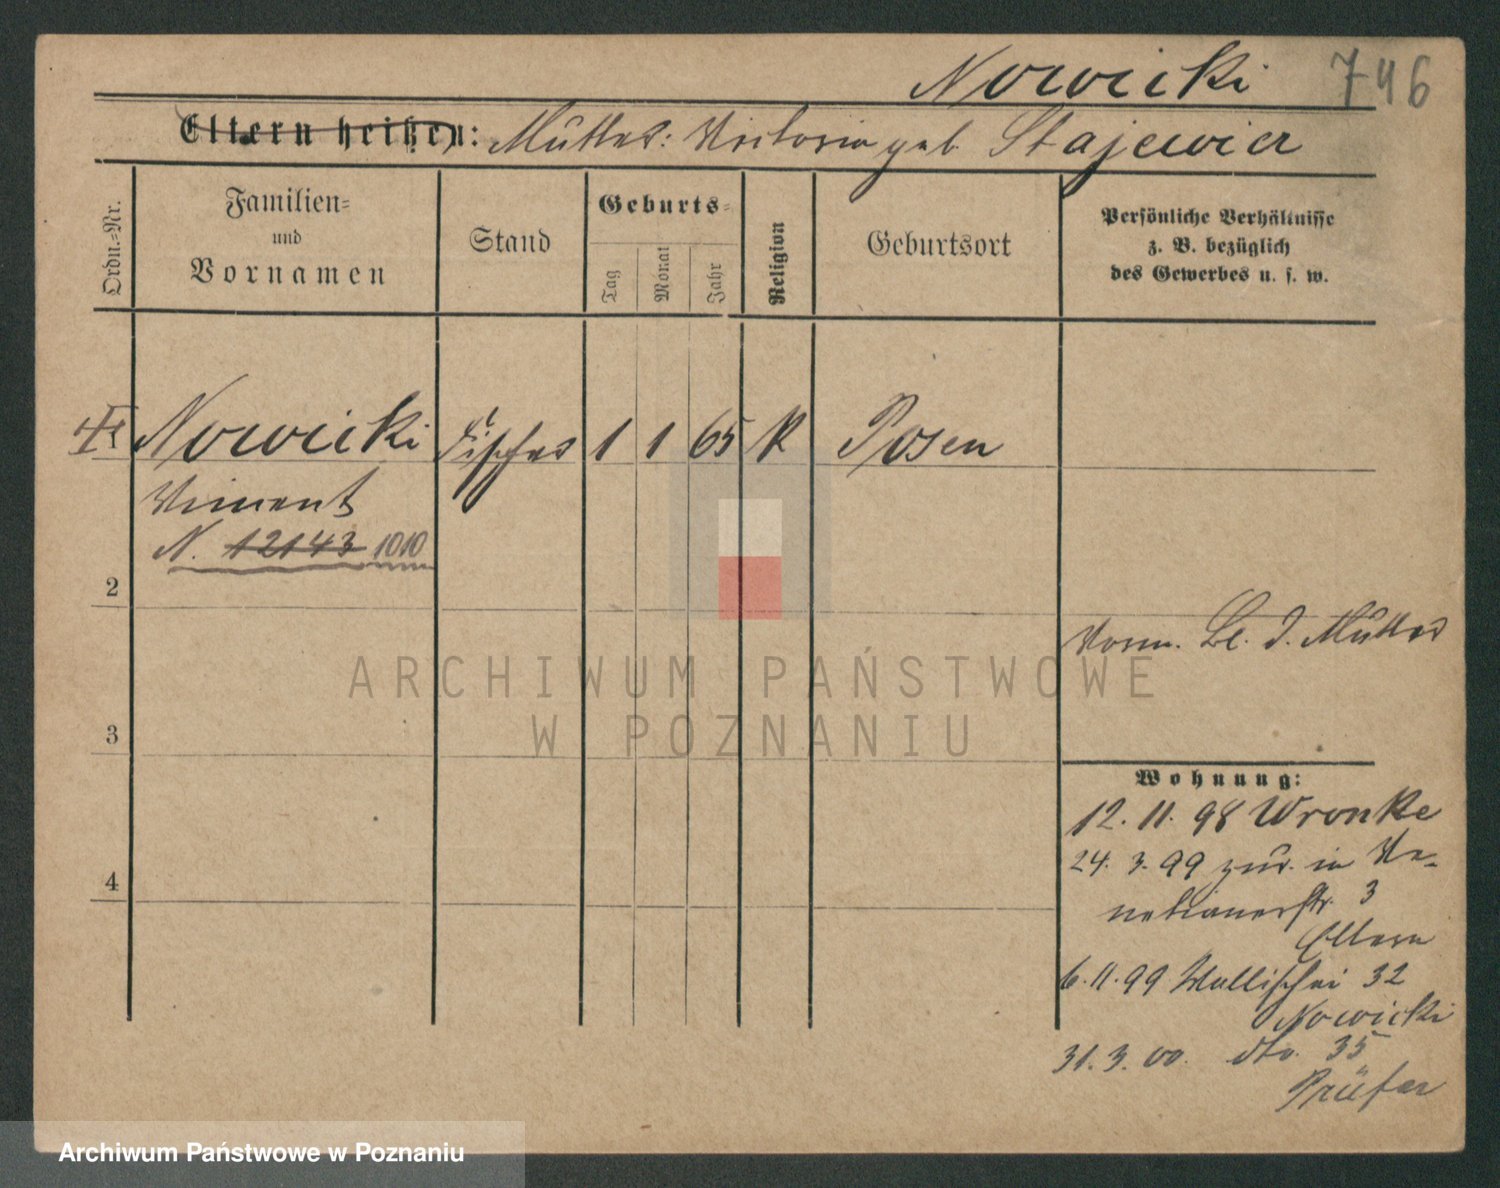 Nowicki 746
Eltern heißen: Mutter: Victoria geb. Stajewicz
Ordn.=Nr.
Familien=
und
Vornamen
Stand
Geburts=
Tag
Monat
Jahr
Religion
Geburtsort
Persönliche Verhältnisse
z. B. bezüglich
des Gewerbes u. s. w.
Nowicki Fischer 1 1 65 K Posen
Vincent
N. 12143 1010
2
Vorm. Bl. d. Mutter
3
Wohnung:
12. 11. 98 Wronke
24. 3. 99 zur. in Ve-
4
netianerstr. 3
Eltern
6. 11. 99 Wallischei 32
Nowicki
31. 3. 00. dto. 35
Prüfer
ARCHIWUM PAŃSTWOWE
W POZNANIU
Archiwum Państwowe w Poznaniu